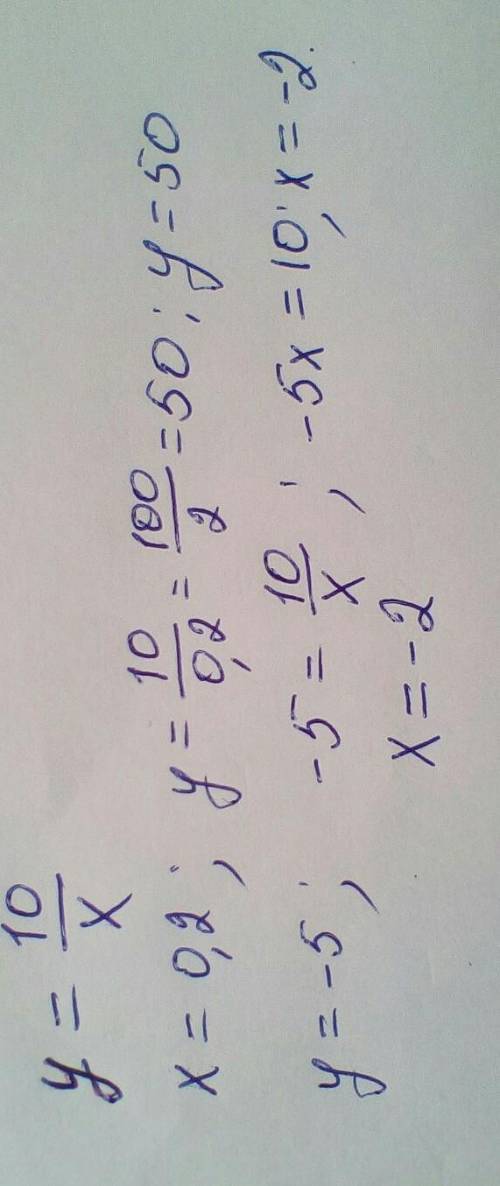 y = 10/x
x = 0,2; y = 10/0,2 = 100/2 = 50; y = 50
y = -5; -5 = 10/x; -5x = 10; x = -2.
x = -2